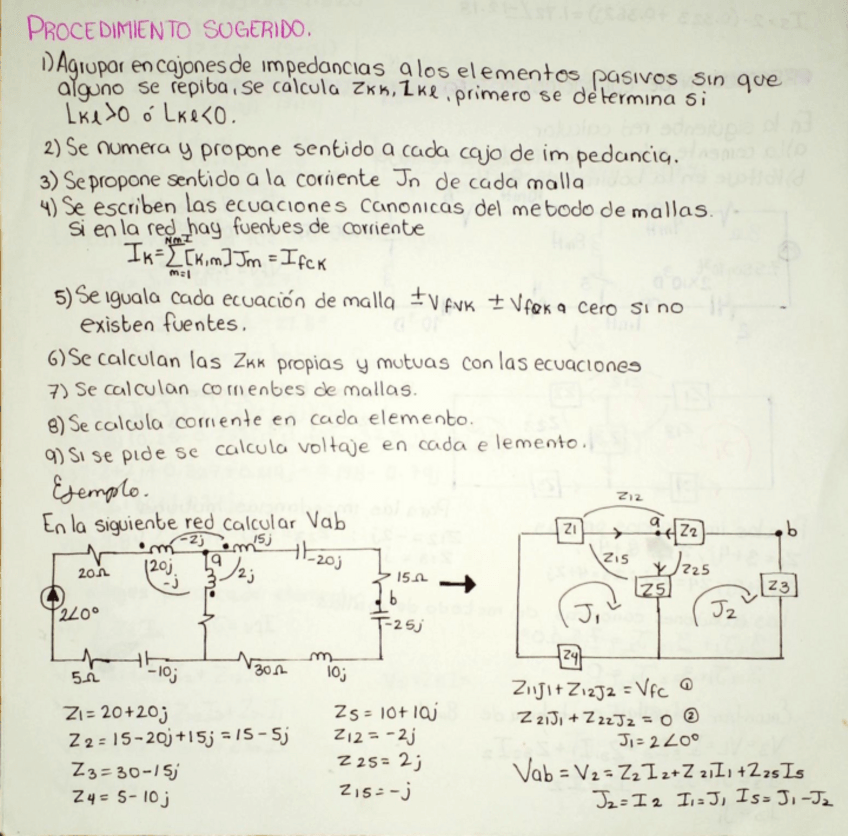 PROCEDIMIENTO SUGERIDO.
1) Agrupar en cajones de impedancias a los elementos pasivos sin que
alguno se repita, se calcula ZKK, ZKℓ, primero se determina si
LKℓ>0 ó LKℓ<0.
2) Se numera y propone sentido a cada cajo de impedancia.
3) Se propone sentido a la corriente Jn de cada malla
4) Se escriben las ecuaciones canonicas del metodo de mallas.
Si en la red hay fuentes de corriente
IK=∑[K,m]Jm = IfcK
m=1
5) Se iguala cada ecuación de malla ±VfvK ± VfcK a cero si no
existen fuentes.
6) Se calculan las ZKK propias y mutuas con las ecuaciones
7) Se calculan corrientes de mallas.
8) Se calcula corriente en cada elemento.
9) Si se pide se calcula voltaje en cada elemento.
Ejemplo.
En la siguiente red calcular Vab
-2j 15j
20Ω 20j a -20j
-j 2j 15Ω
2∠0° b
-25j
5Ω -10j 30Ω 10j
Z12
Z1 a Z2 b
Z15 Z25
Z5 Z3
J1 J2
Z4
Z1 = 20+20j
Z2 = 15-20j+15j = 15-5j
Z3 = 30-15j
Z4 = 5-10j
Z5 = 10+10j
Z12 = -2j
Z25 = 2j
Z15 = -j
Z11J1+Z12J2 = Vfc ①
Z21J1+Z22J2 = 0 ②
J1=2∠0°
Vab = V2 = Z2I2+Z21I1+Z25I5
J2=I2 I1=J1 I5=J1-J2